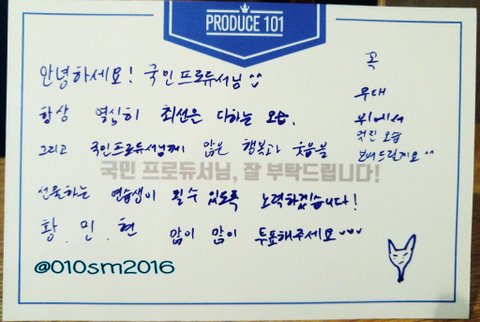 PRODUCE 101
안녕하세요! 국민프로듀서님^^
항상 열심히 최선을 다하는 모습,
그리고 국민프로듀서님께 많은 행복과 웃음을
국민 프로듀서님, 잘 부탁드립니다!
선물하는 연습생이 될 수 있도록 노력하겠습니다!
황.민.현 많이 많이 투표해주세요
꼭
무대
위에서
멋진 모습
보여드릴게요^^
@010sm2016